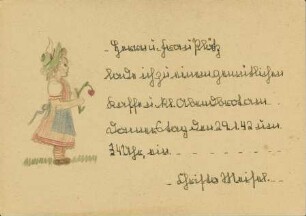 - Herrn u. Frau Plötz
lade ich zu einem gemütlichen
Kaffee u. kl. Abendbrot am
Donnerstag den 29.1.42 um
34 Uhr, ein. - - - - - - -
- Christa Meisel. - -